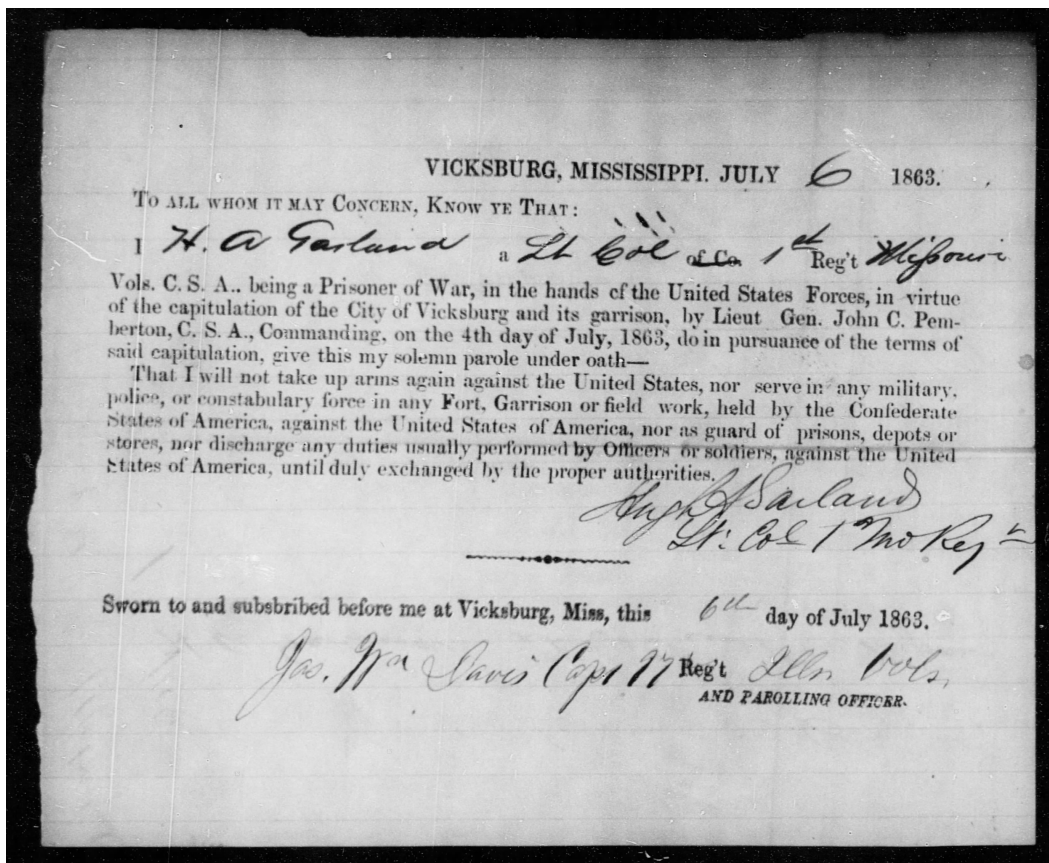 VICKSBURG, MISSISSIPPI. JULY 6 1863.
TO ALL WHOM IT MAY CONCERN, KNOW YE THAT:
I H. A Garland a Lt Col of Co. 1st Reg't Missouri
Vols. C. S. A., being a Prisoner of War, in the hands of the United States Forces, in virtue
of the capitulation of the City of Vicksburg and its garrison, by Lieut Gen. John C. Pem-
berton, C. S. A., Commanding, on the 4th day of July, 1863, do in pursuance of the terms of
said capitulation, give this my solemn parole under oath—
That I will not take up arms again against the United States, nor serve in any military,
police, or constabulary force in any Fort, Garrison or field work, held by the Confederate
States of America, against the United States of America, nor as guard of prisons, depots or
stores, nor discharge any duties usually performed by Officers or soldiers, against the United
States of America, until duly exchanged by the proper authorities.
Hugh A Garland
Lt. Col 1 Mo Regt
Sworn to and subsbribed before me at Vicksburg, Miss, this 6th day of July 1863.
Jas. Wm Davis Capt 77 Reg't Ills. Vols.
AND PAROLLING OFFICER.